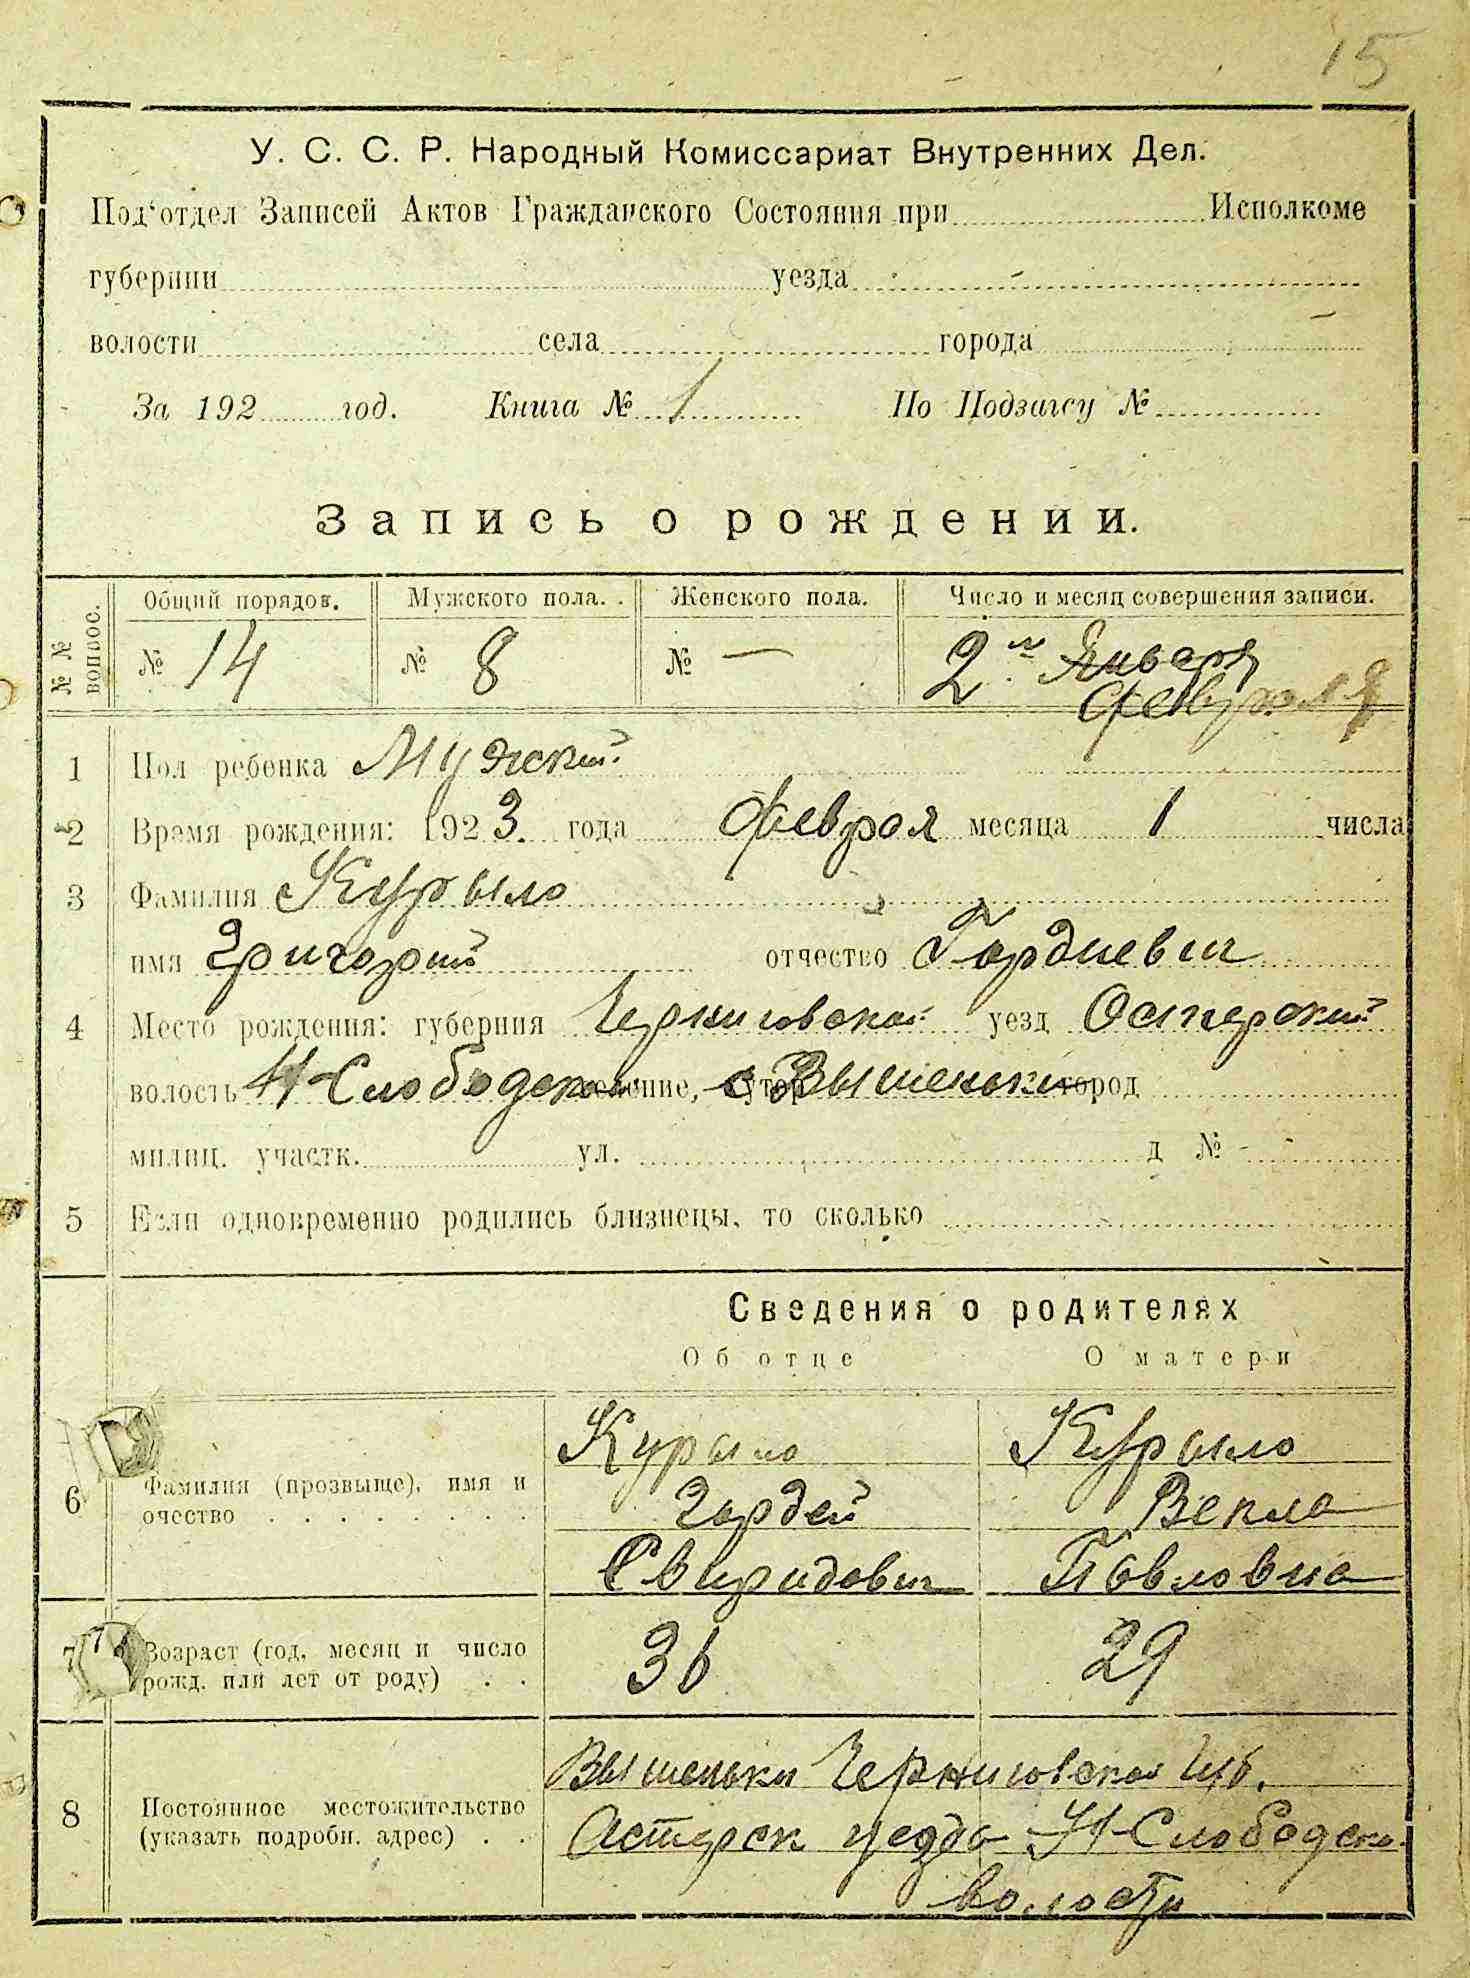 15
У. С. С. Р. Народный Комиссариат Внутренних Дел.
Под'отдел Записей Актов Гражданского Состояния при Исполкоме
губернии уезда
волости села города
За 192 год. Книга № 1 По Подзагсу №
Запись о рождении.
№ № вопрос. Общий порядов. Мужского пола. Женского пола. Число и месяц совершения записи.
№ 14 № 8 № — 2 Января
февраля
1 Пол ребенка Мужский
2 Время рождения: 1923. года Феврал месяца 1 числа
3 Фамилия Курыло
имя Григорий отчество Гордиевич
4 Место рождения: губерния Черниговская уезд Остерский
волость Н-Слободская селение, хутор с Вышеньки город
милиц. участк. ул. д №
5 Если одновременно родились близнецы, то сколько
Сведения о родителях
Об отце О матери
Курыло Курыло
6 Фамилия (прозвыще), имя и очество Гордей Векла
Свиридович Павловна
7 Возраст (год, месяц и число рожд. или лет от роду) 36 29
Вышеньки Черниговская губ.
8 Постоянное местожительство (указать подробн. адрес) Астерск уезда Н-Слободско
волости